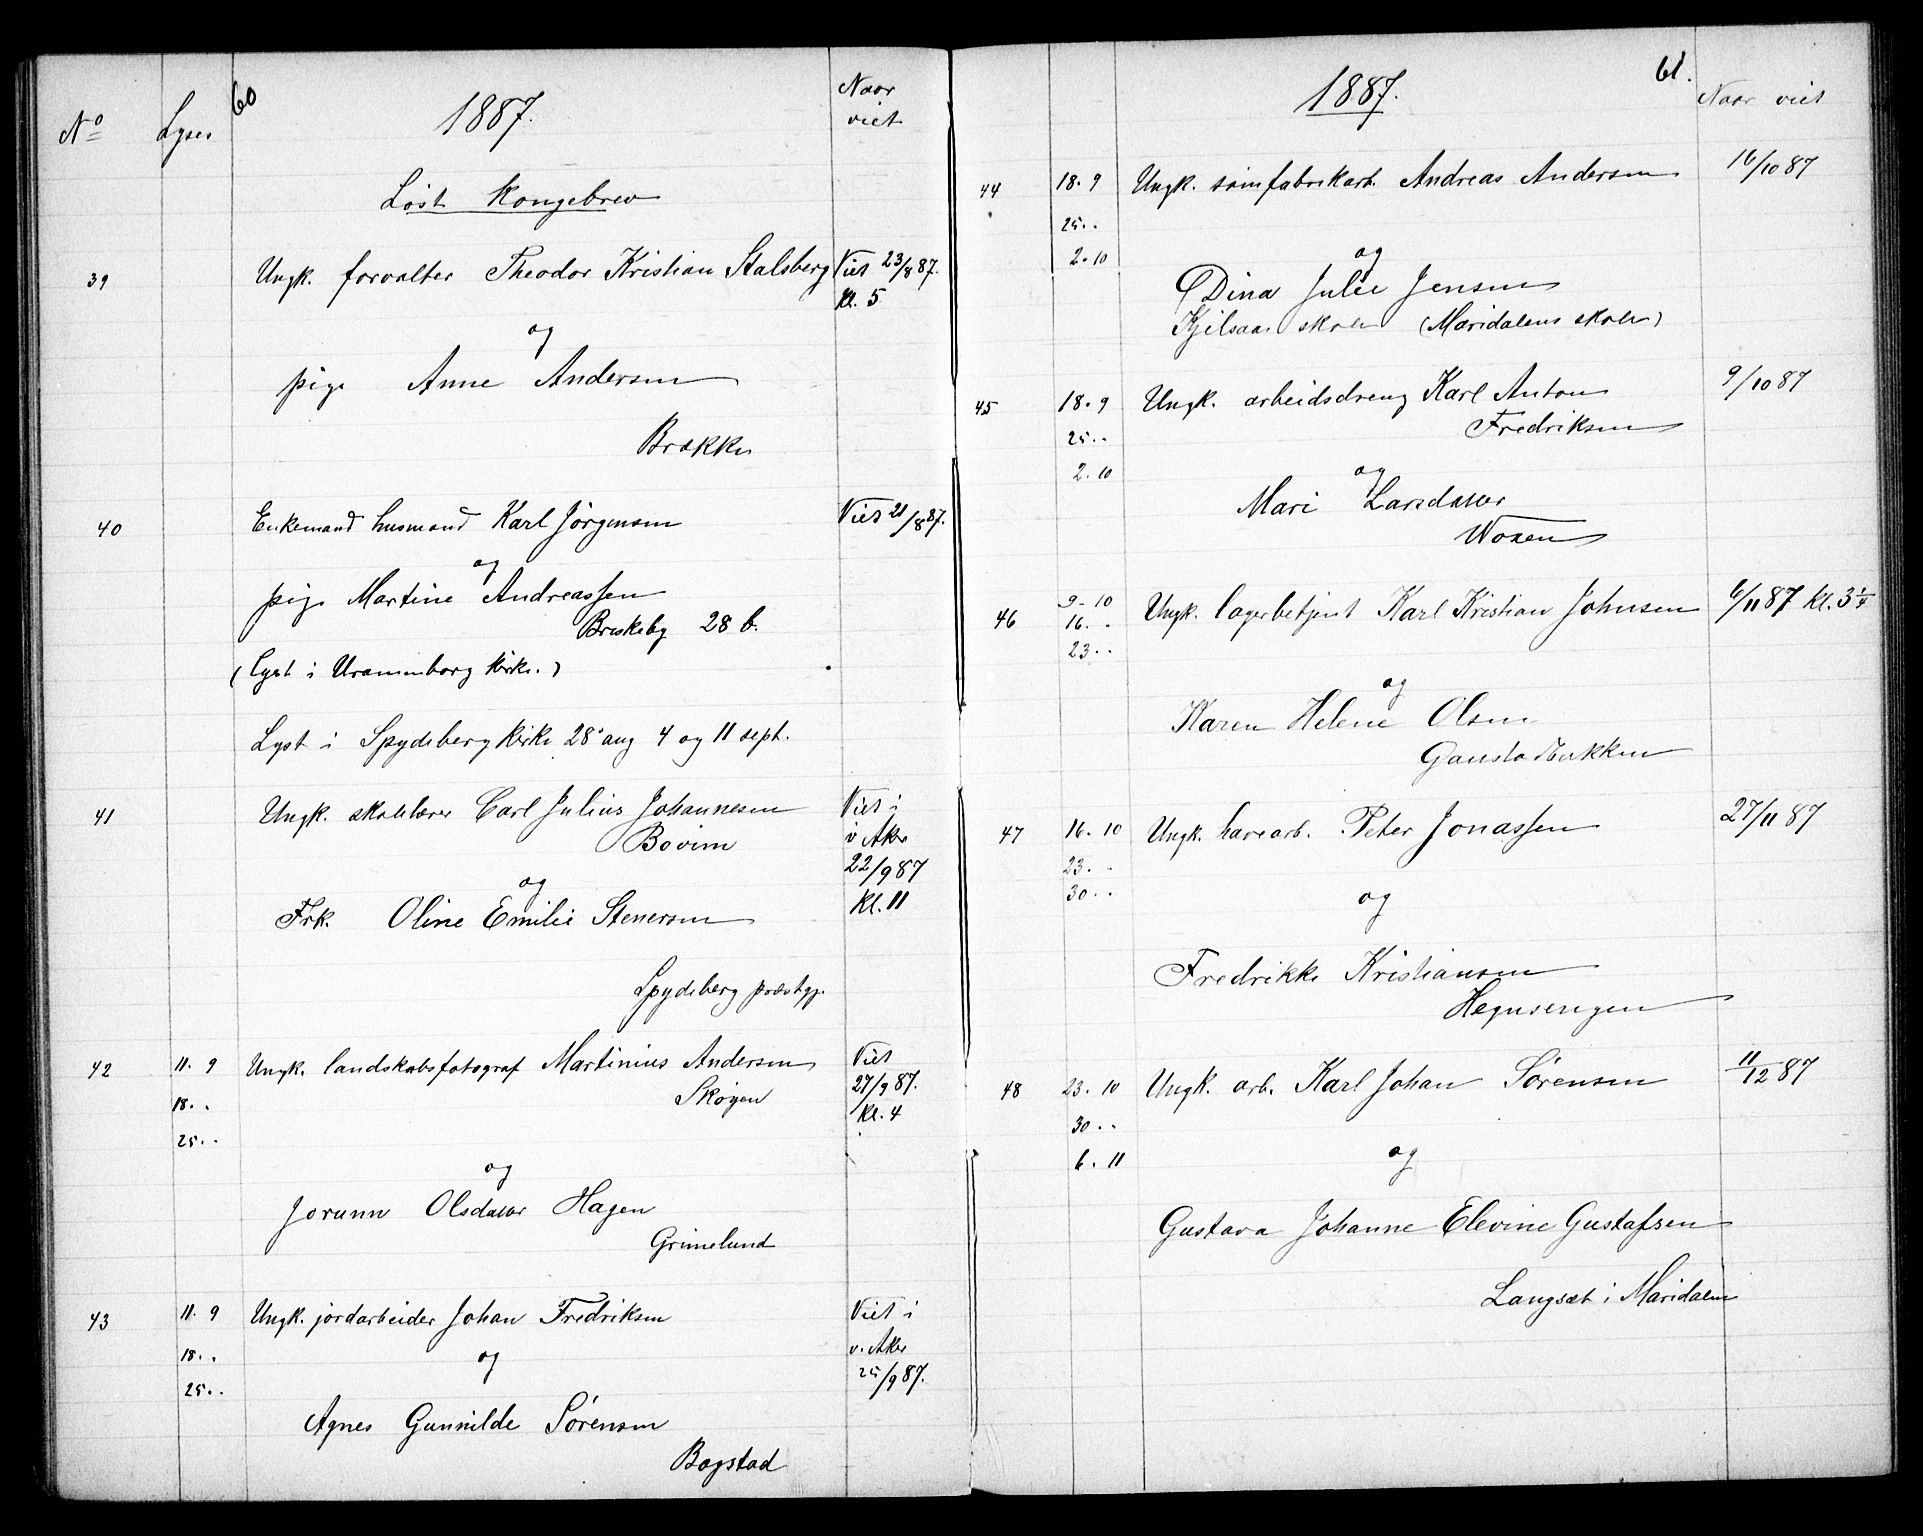 60
1887.
No Lyses Naar viet
Løst Kongebrev
39 Ungk. forvalter Theodor Kristian Stalsberg Viet 23/8 87.
Kl. 5
og
pige Anne Andersen
Brække
40 Enkemand husmand Karl Jørgensen Viet 21/8 87.
og
pige Martine Andreassen
Briskeby 28 b.
(Lyst i Uranienborg kirke.)
Lyst i Spydeberg kirke 28 aug 4 og 11 sept.
41 Ungk. skolelærer Carl Julius Johannesen Viet i
Bovim v Aker
22/9 87
og
Frk. Oline Emilie Stenersen Kl. 11
Spydeberg præstgj.
42 11. 9 Ungk. landskabsfotograf Martinius Andersen Viet
18. . Skøyen 27/9 87.
Kl. 4
25. .
og
Jorunn Olsdatter Hagen
Grimelund
43 11. 9 Ungk. jordarbeider Johan Fredriksen Viet i
18. . og v. Aker
25. . 25/9 87.
Agnes Gunnilde Sørensen
Bogstad
61.
1887.
Naar viet
44 18. 9 Ungk. sømfabrikarb. Andreas Andersen 16/10 87
25. .
2. 10 og
Dina Julie Jensen
Kjelsaas skole (Maridalens skole)
45 18. 9 Ungk. arbeidsdreng Karl Anton 9/10 87
25. . Fredriksen
2. 10 og
Mari Larsdatter
Voxen
46 9. 10 Ungk. lagerbetjent Karl Kristian Johnsen 6/11 87 kl. 3 1/4
16. .
23. .
og
Karen Helene Olsen
Gaustadbakken
47 16. 10 Ungk. havearb. Peter Jonassen 27/11 87
23. .
30. . og
Fredrikke Kristiansen
Hegnsengen
48 23. 10 Ungk. arb. Karl Johan Sørensen 11/12 87
30. .
6. 11 og
Gustava Johanne Elevine Gustafsen
Langsæt i Maridalen